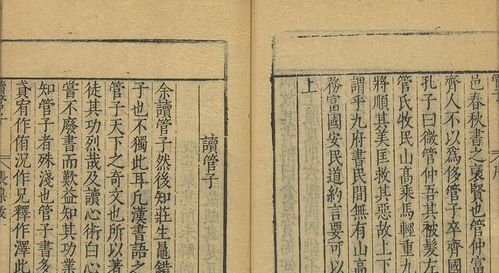 邑春秋書之褒賢也管仲富
齊人不以爲侈管子卒齊國
孔子曰微管仲吾其被髮左
管氏牧民山高乘馬輕重九
將順其美匡救其惡故上下
謂乎九府書民間無有山高
務富國安民道約言要可以
上
讀管子
余讀管子然後知莊生鼂錯
子也不獨此耳凡漢書語之
管子天下之奇文也所以著
徒其功烈哉及讀心術白心
嘗不廢書而歎益知其功業
知管子者殊淺也管子書多
賁宥作侑況作兄釋作澤此